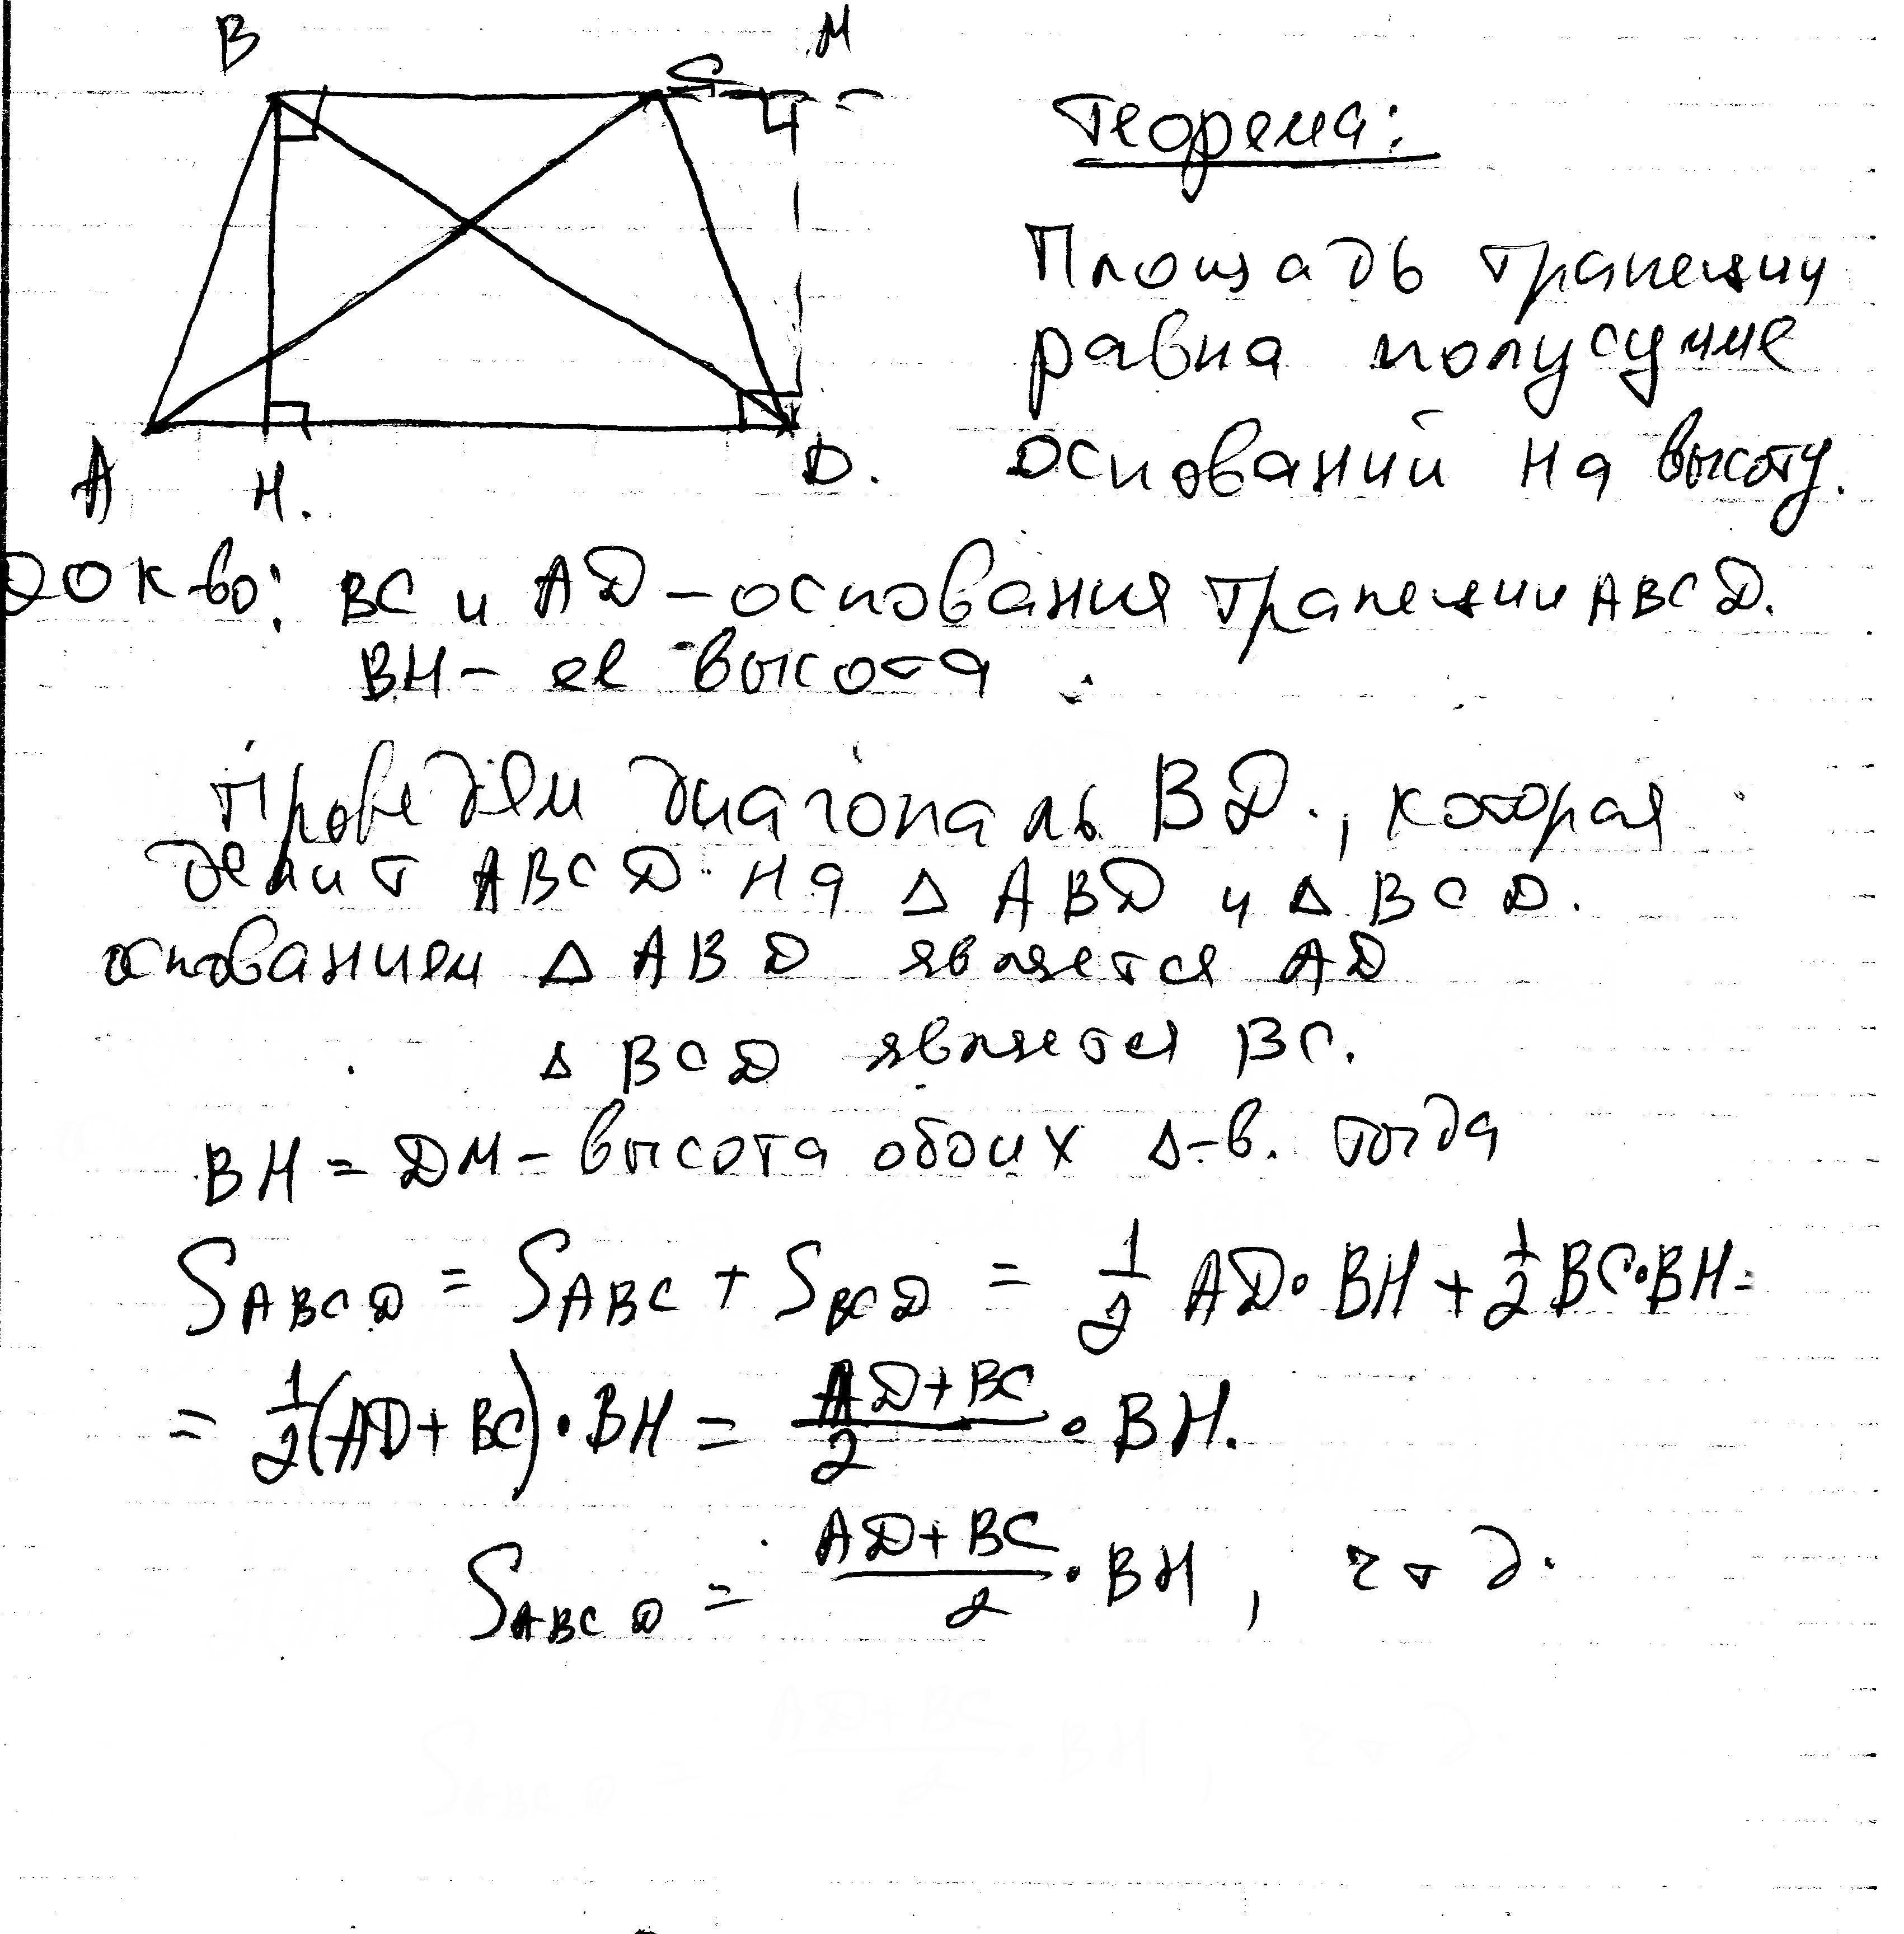 B C M
Теорема:
Площадь трапеции
равна полусумме
оснований на высоту.
A H. D.
Док-во: BC и AD – основания трапеции ABCD.
BH – ее высота
Проведём диагональ BD., которая
делит ABCD на Δ ABD и Δ BCD.
основанием Δ ABD является AD
Δ BCD является BC.
BH = DM – высота обоих Δ-в. Тогда
S_{ABCD} = S_{ABC} + S_{BCD} = 1/2 AD·BH + 1/2 BC·BH =
= 1/2 (AD + BC)·BH = (AD + BC)/2 · BH.
S_{ABCD} = (AD + BC)/2 · BH, чтд.